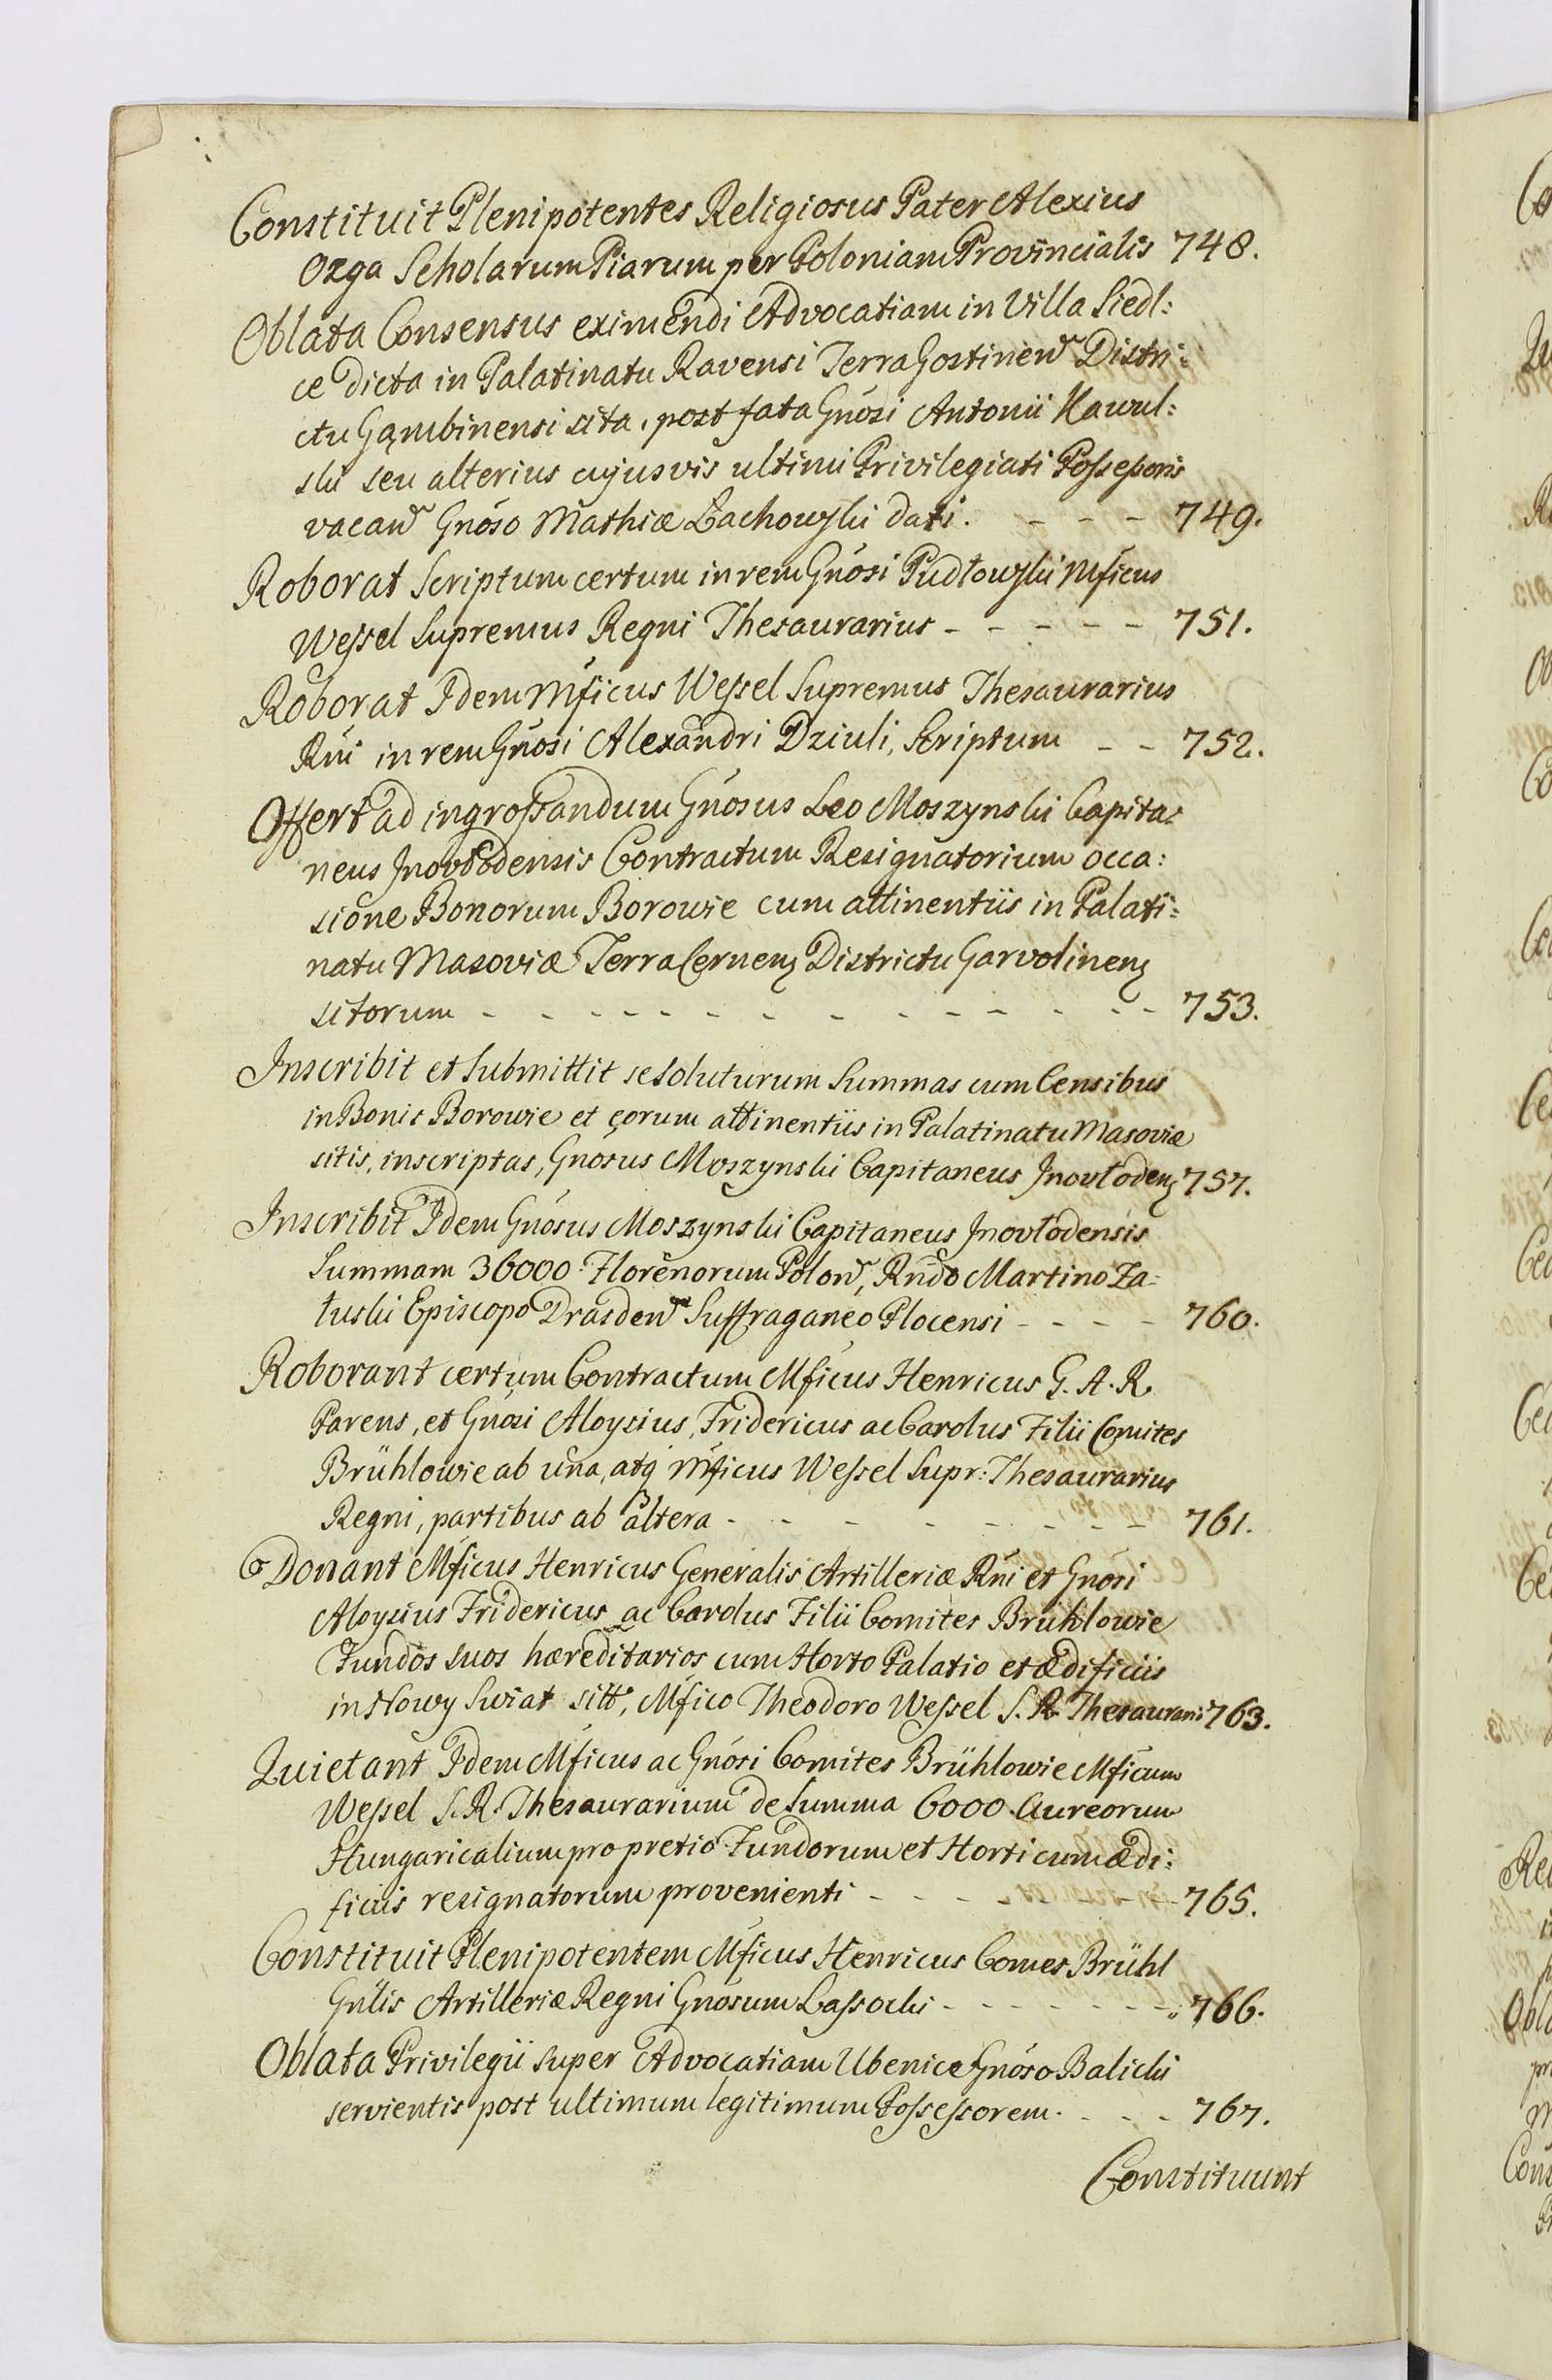 Constituit Plenipotentes Religiosus Pater Alexius
Ozga Scholarum Piarum per Poloniam Provincialis 748.
Oblata Consensus eximendi Advocatiam in Villa Siedl:
ce dicta in Palatinatu Ravensi Terra Gostinen̄ Distri:
ctu Gąmbinensi sita, post fata Gnosi Antonii Kawul:
ski seu alterius cujusvis ultimi Privilegiati Possessoris
vacan̄ Gnoso Mathiæ Łachowski dati. - - - 749.
Roborat Scriptum certum in rem Gnosi Pudłowski Mficus
Wessel Supremus Regni Thesaurarius - - - - - 751.
Roborat Idem Mficus Wessel Supremus Thesaurarius
Rni in rem Gnosi Alexandri Dziuli, Scriptum - - 752.
Offert ad ingrossandum Gnosus Leo Moszynski Capita:
neus Inovłodensis Contractum Resignatorium occa:
sione Bonorum Borowie cum attinentiis in Palati:
natu Masoviæ Terra Cernenz Districtu Garvolinenz
sitorum - - - - - - - - - - - - - 753.
Inscribit et Submittit se soluturum Summas cum Censibus
in Bonis Borowie et eorum attinentiis in Palatinatu Masoviæ
sitis, inscriptas, Gnosus Moszynski Capitaneus Inovłodenz 757.
Inscribit Idem Gnosus Moszynski Capitaneus Inovłodensis
Summam 36000 Florenorum Polon̄, Rndo Martino Za:
łuski Episcopo Drasden̄ Suffraganeo Plocensi - - - - 760.
Roborant certum Contractum Mficus Henricus G. A. R.
Parens, et Gnosi Aloysius, Fridericus ac Carolus Filii Comites
Brühlowie ab una, atq Mficus Wessel Supr: Thesaurarius
Regni, partibus ab altera - - - - - - - - 761.
Donant Mficus Henricus Generalis Artilleriæ Rni et Gnosi
Aloysius Fridericus ac Carolus Filii Comites Brühlowie
Fundos suos hæreditarios cum Horto Palatio et ædificiis
in Nowy Swiat sitt, Mfico Theodoro Wessel S. R. Thesaurario 763.
Quietant Idem Mficus ac Gnosi Comites Brühlowie Mficum
Wessel S. R. Thesaurarium de Summa 6000 Aureorum
Hungaricalium pro pretio Fundorum et Horti cum ædi:
ficiis resignatorum provenienti - - - - - 765.
Constituit Plenipotentem Mficus Henricus Comes Brühl
Gnlis Artilleriæ Regni Gnosum Lassocki - - - - - - - 766.
Oblata Privilegii super Advocatiam Ubenice Gnoso Balicki
servientis post ultimum legitimum Possessorem. - - - 767.
Constituunt